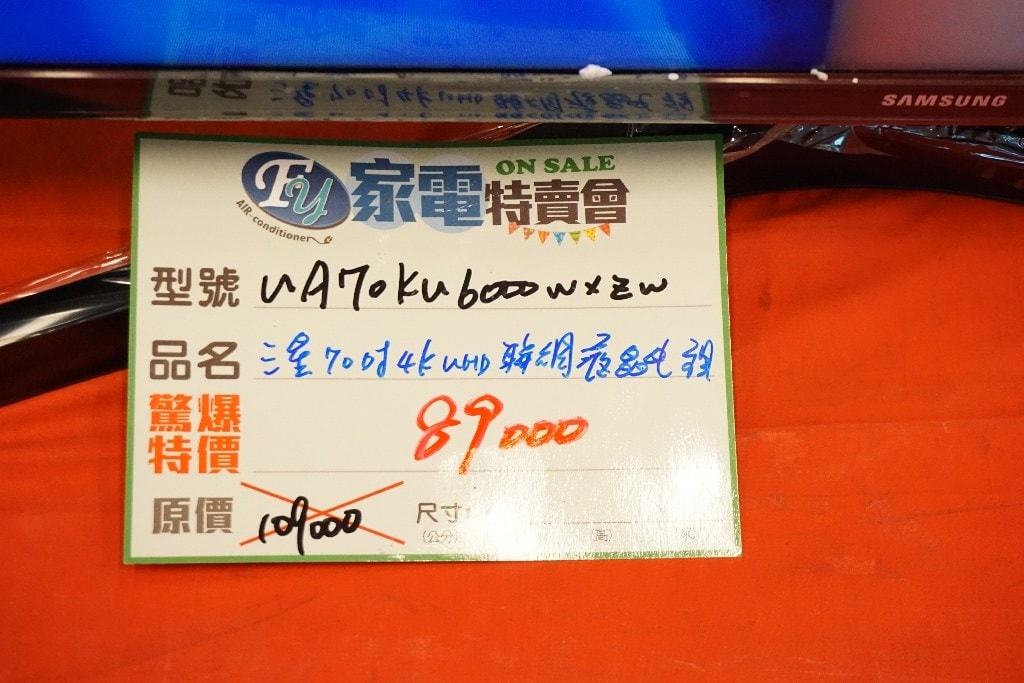 SAMSUNG
FY 家電特賣會 ON SALE
AIR-conditioner
型號 UA70KU6000WXZW
品名 三星70吋4K UHD 聯網液晶電視
驚爆特價 89000
原價 109000 尺寸:
(公分) 高